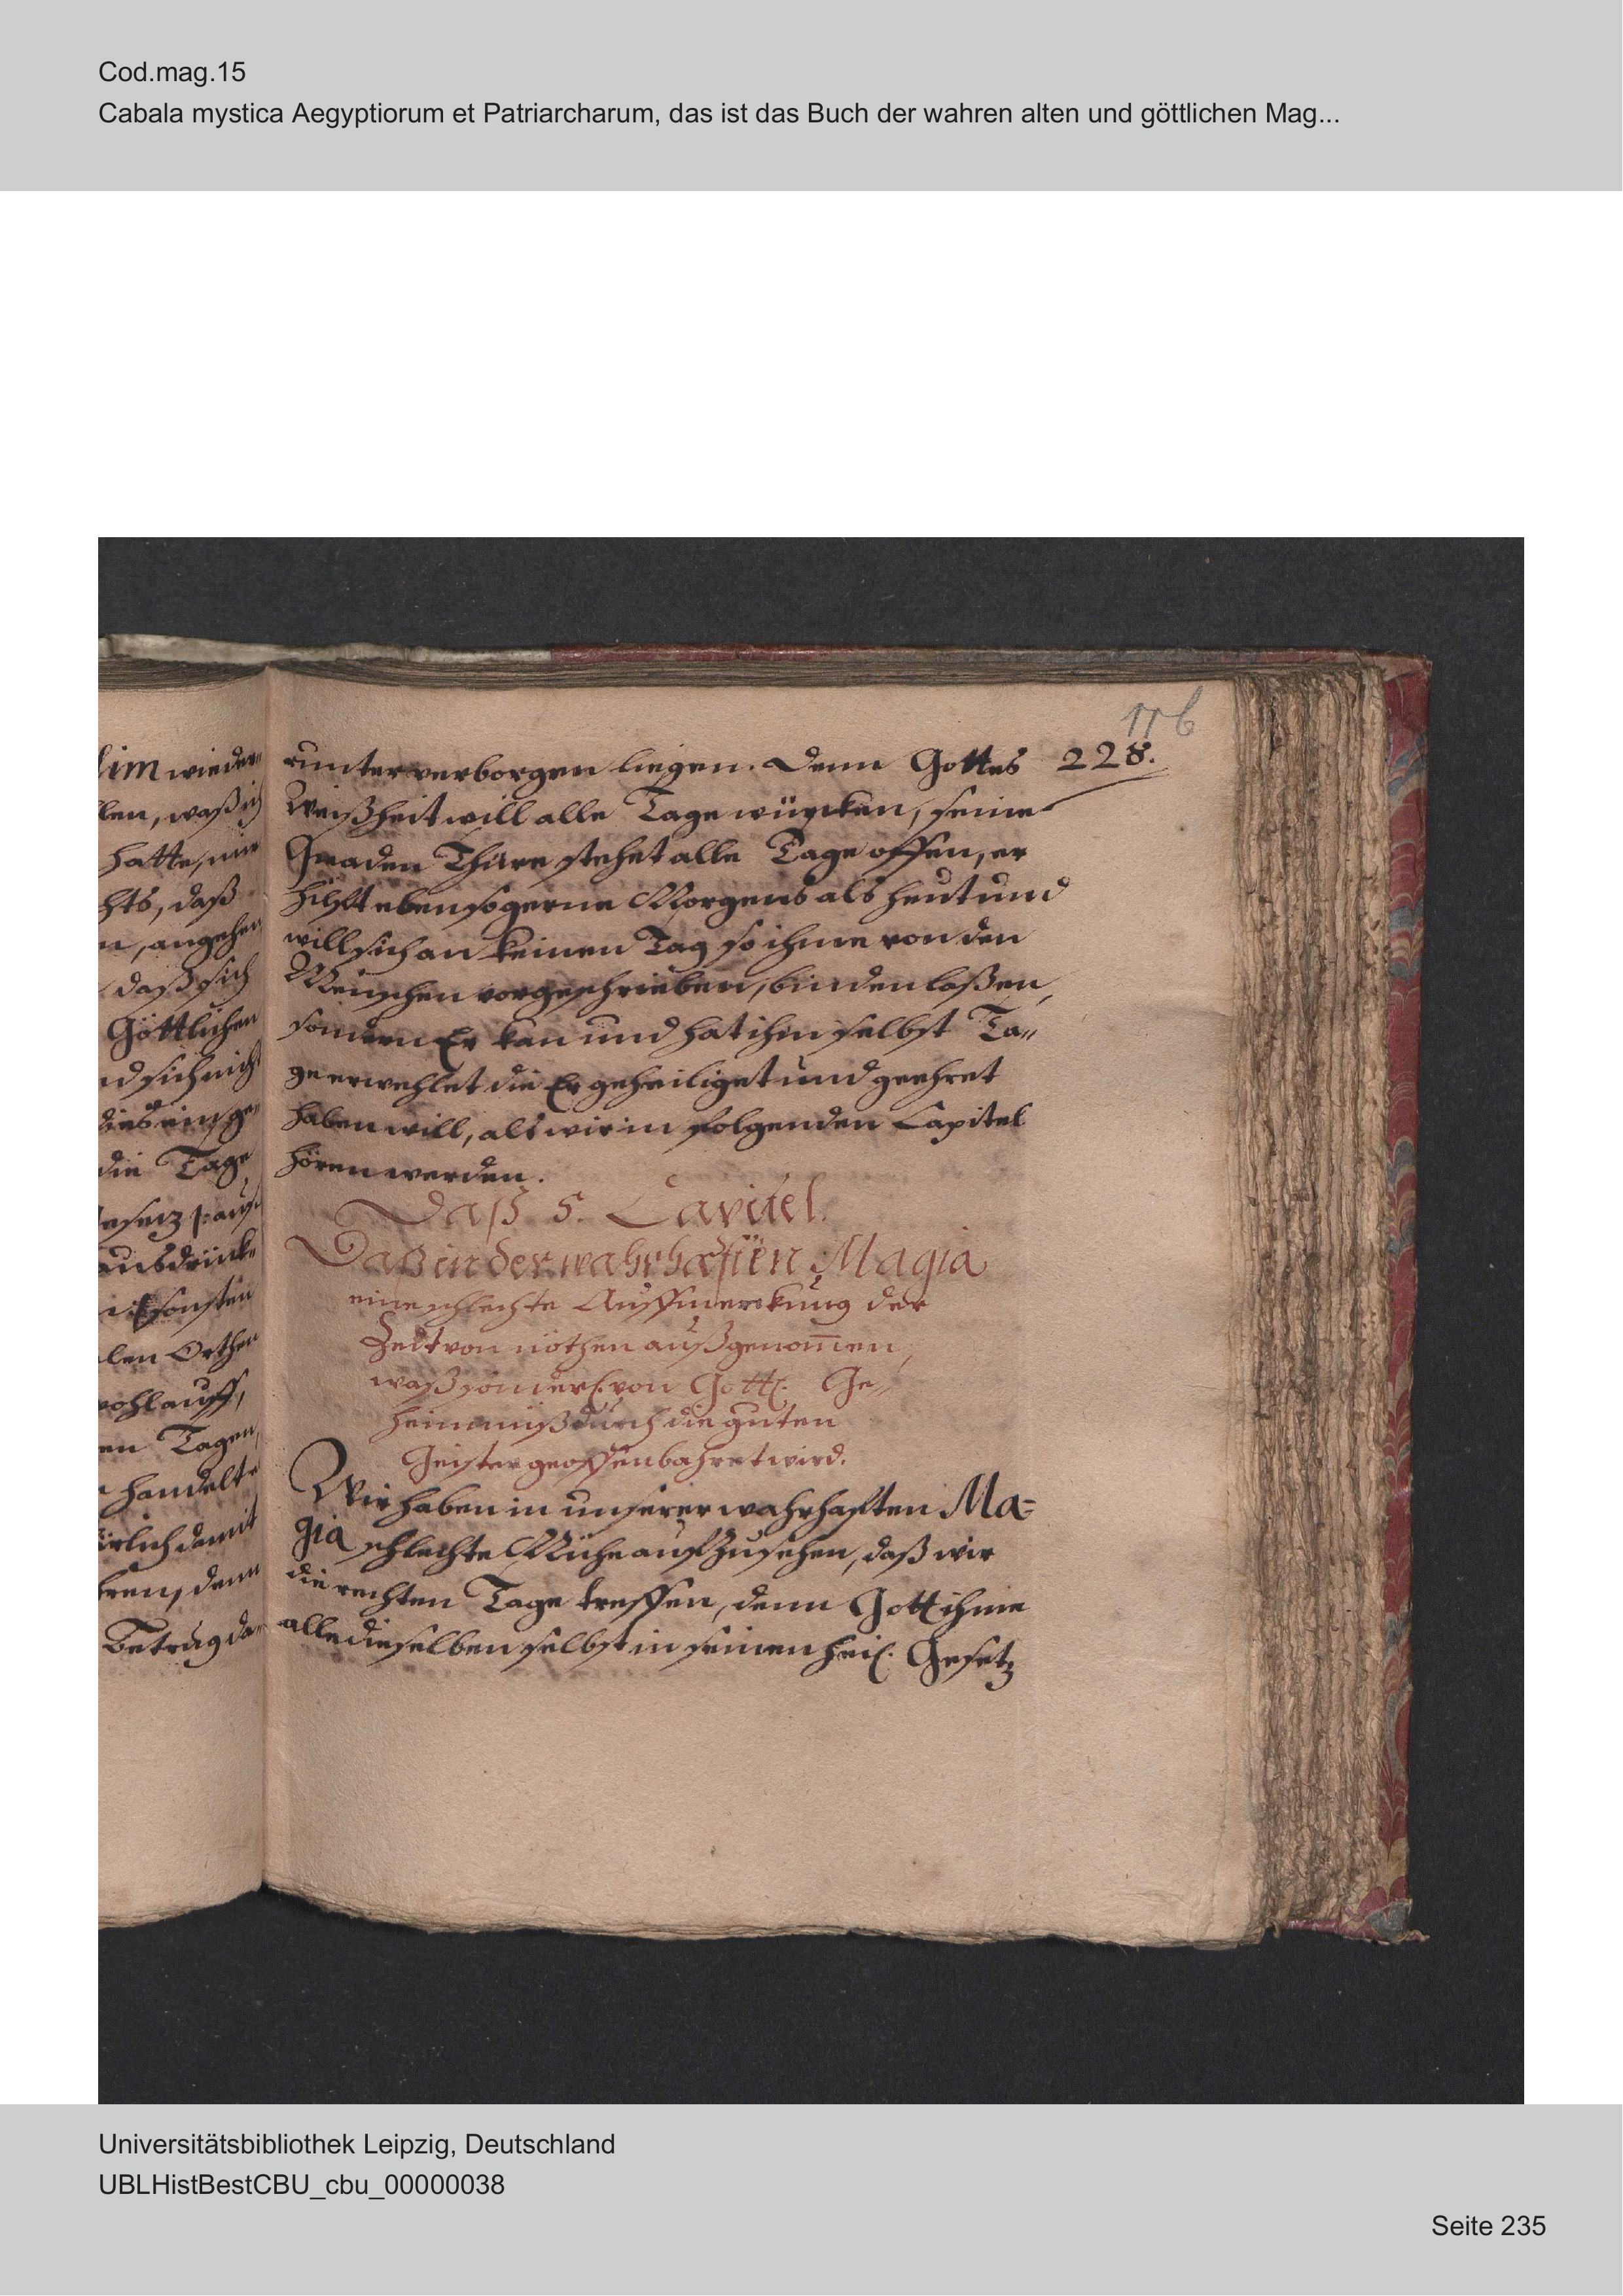 Cod.mag.15
Cabala mystica Aegyptiorum et Patriarcharum, das ist das Buch der wahren alten und göttlichen Mag...
116
228.
lim wieder„
len, waß ich
hatte, nur
hts, daß
n, angehen
daß sich
Göttlichen
nd sich nicht
die Tage
len Orther
wohl auff,
en Tagen,
handelt
ürlich damit
hren, denn
Betrug da„
runter verborgen liegen. Denn Gottes
Weißheit will alle Tage würcken, seine
Gnaden Thüre stehet alle Tage offen, er
hilfft eben so gerne Morgens als heut und
will sich an keinen Tag so ihme von den
Menschen vorgeschrieben, binden laßen,
sondern Er kan und hat ihm selbst Ta„
ge erwehlet die Er geheiliget und geehret
haben will, als wir in folgenden Capitel
hören werden.
Daß 5. Capitel.
Daß in der wahrhafften Magia
eine schlechte Auffmerckung der
Zeit von nöthen außgenom̅en,
waß von Gottl. Ge„
heimnuiß durch die guten
Geister geoffenbahret wird.
Wir haben in unserer wahrhafften Ma=
gia schlechte Mühe auffzusehen, daß wir
die rechten Tage treffen, denn Gott ihme
alle dieselben selbst in seinen heil. Gesetz
Universitätsbibliothek Leipzig, Deutschland
UBLHistBestCBU_cbu_00000038
Seite 235